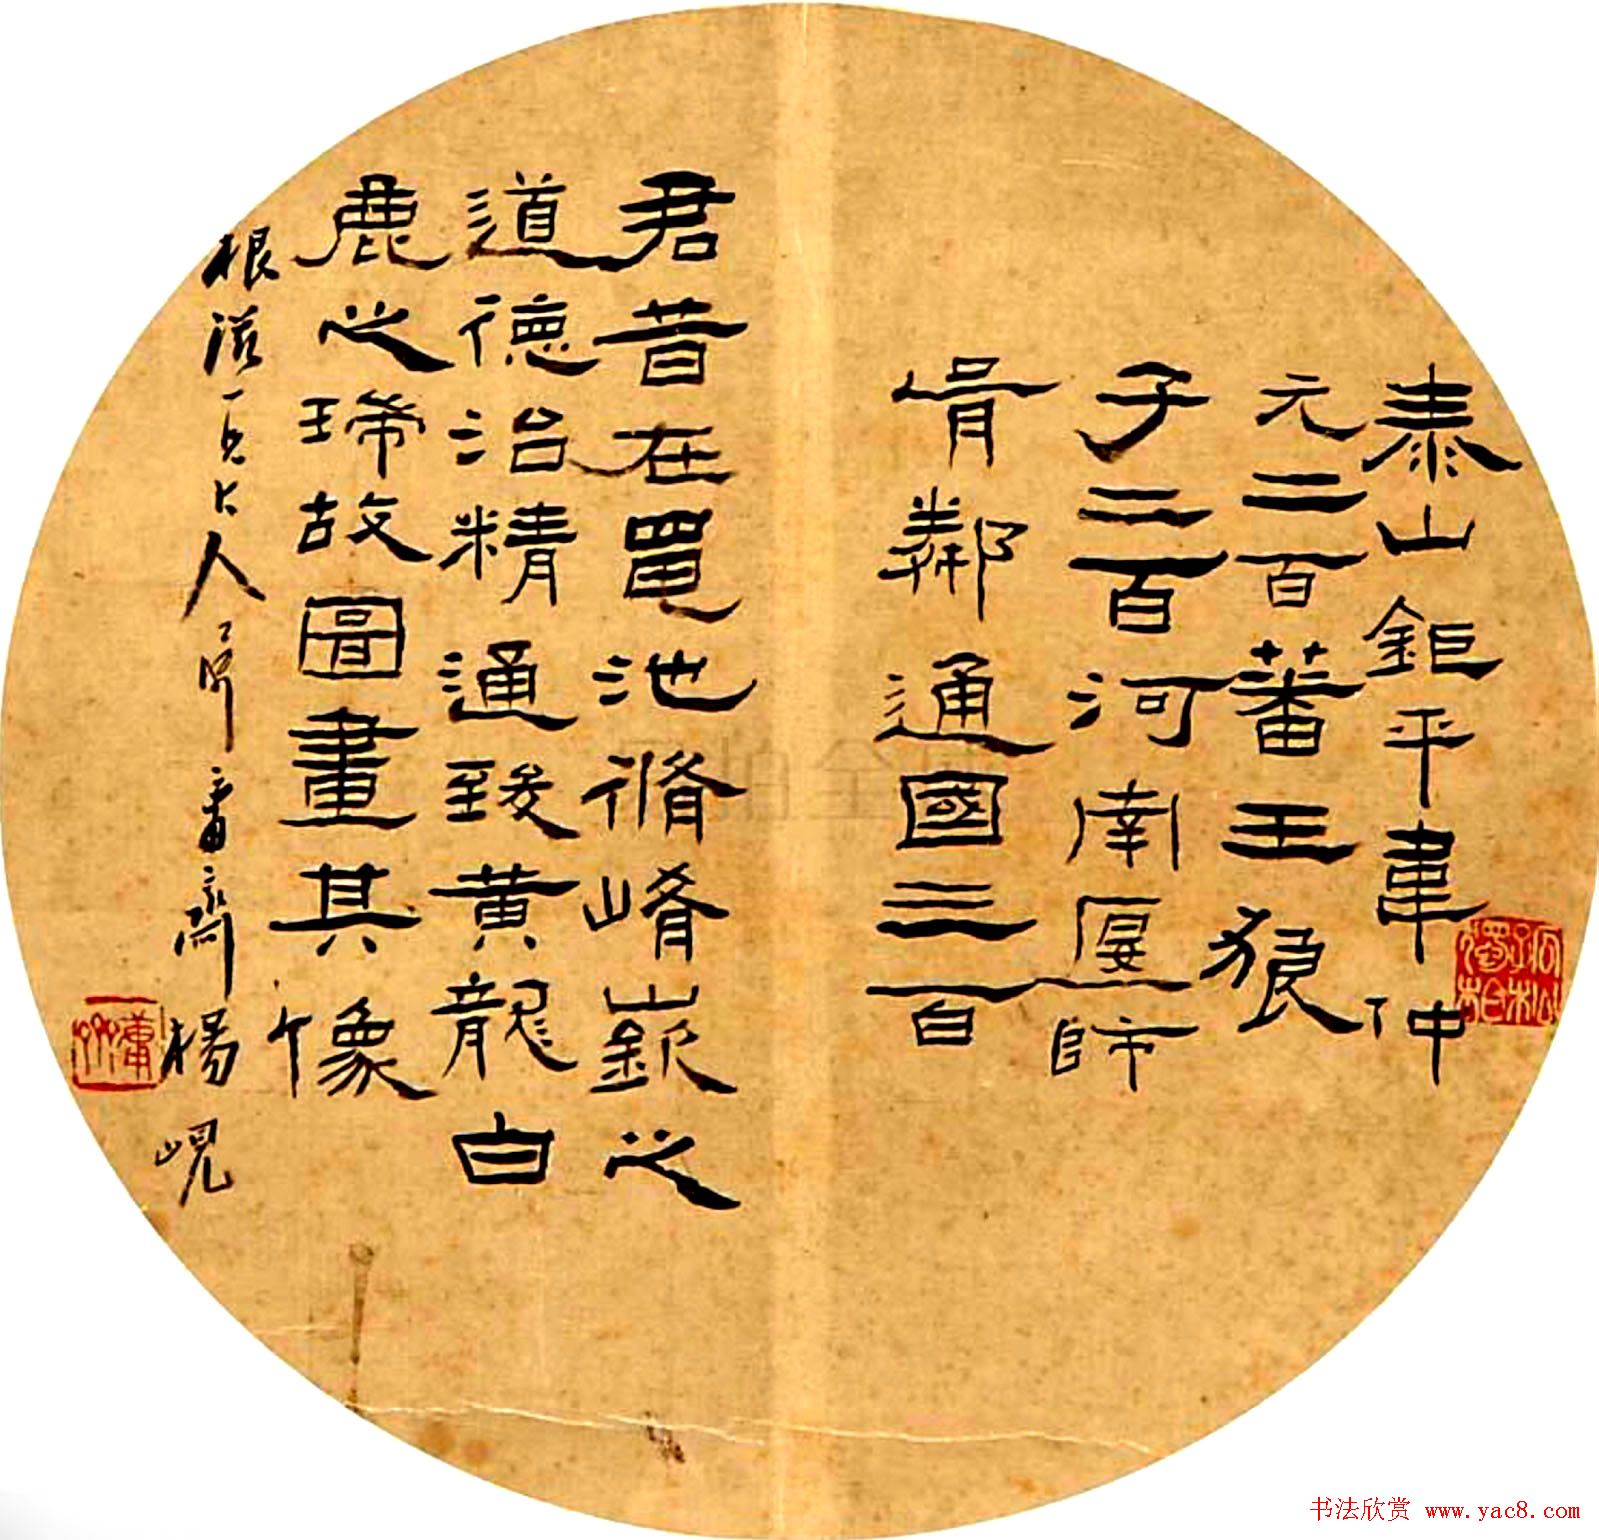 泰山鉅平韋仲
元二百蕃王狼
子二百河南匽師
胥鄰通國三百
君昔在黽池脩崤嶔之
道德治精通致黃龍白
鹿之瑞故圖畫其像
根滋大人庸齋楊峴
书法欣赏 www.yac8.com